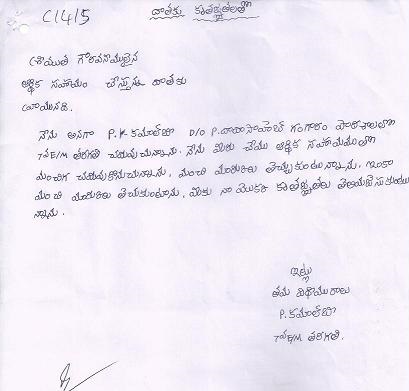 C/4/5
దాతకు కృతజ్ఞతలతో
శ్రీయుత గౌరవనియులైన
ఆర్థిక సహాయం చేస్తున్న దాతకు
వ్రాయునది.
నేను అనగా P.K కమాల్‌బీ D/O P. దాదాసాహెబ్ గంగారం పాఠశాలలో
7వE/M తరగతి చదువుచున్నాను. నేను మీరు చేయు ఆర్థిక సహాయముతో
మంచిగ చదువుకొనుచున్నాను. మంచి మార్కులు తెచ్చుకుంటున్నాను. ఇంకా
మంచి మార్కులు తెచుకుంటాను. మీకు నా యొక్క కృతజ్ఞతలు తెలియజేసుకుంటు
న్నాను.
ఇట్లు
తమ విధేయురాలు
P. కమాల్‌బీ
7వE/M తరగతి.